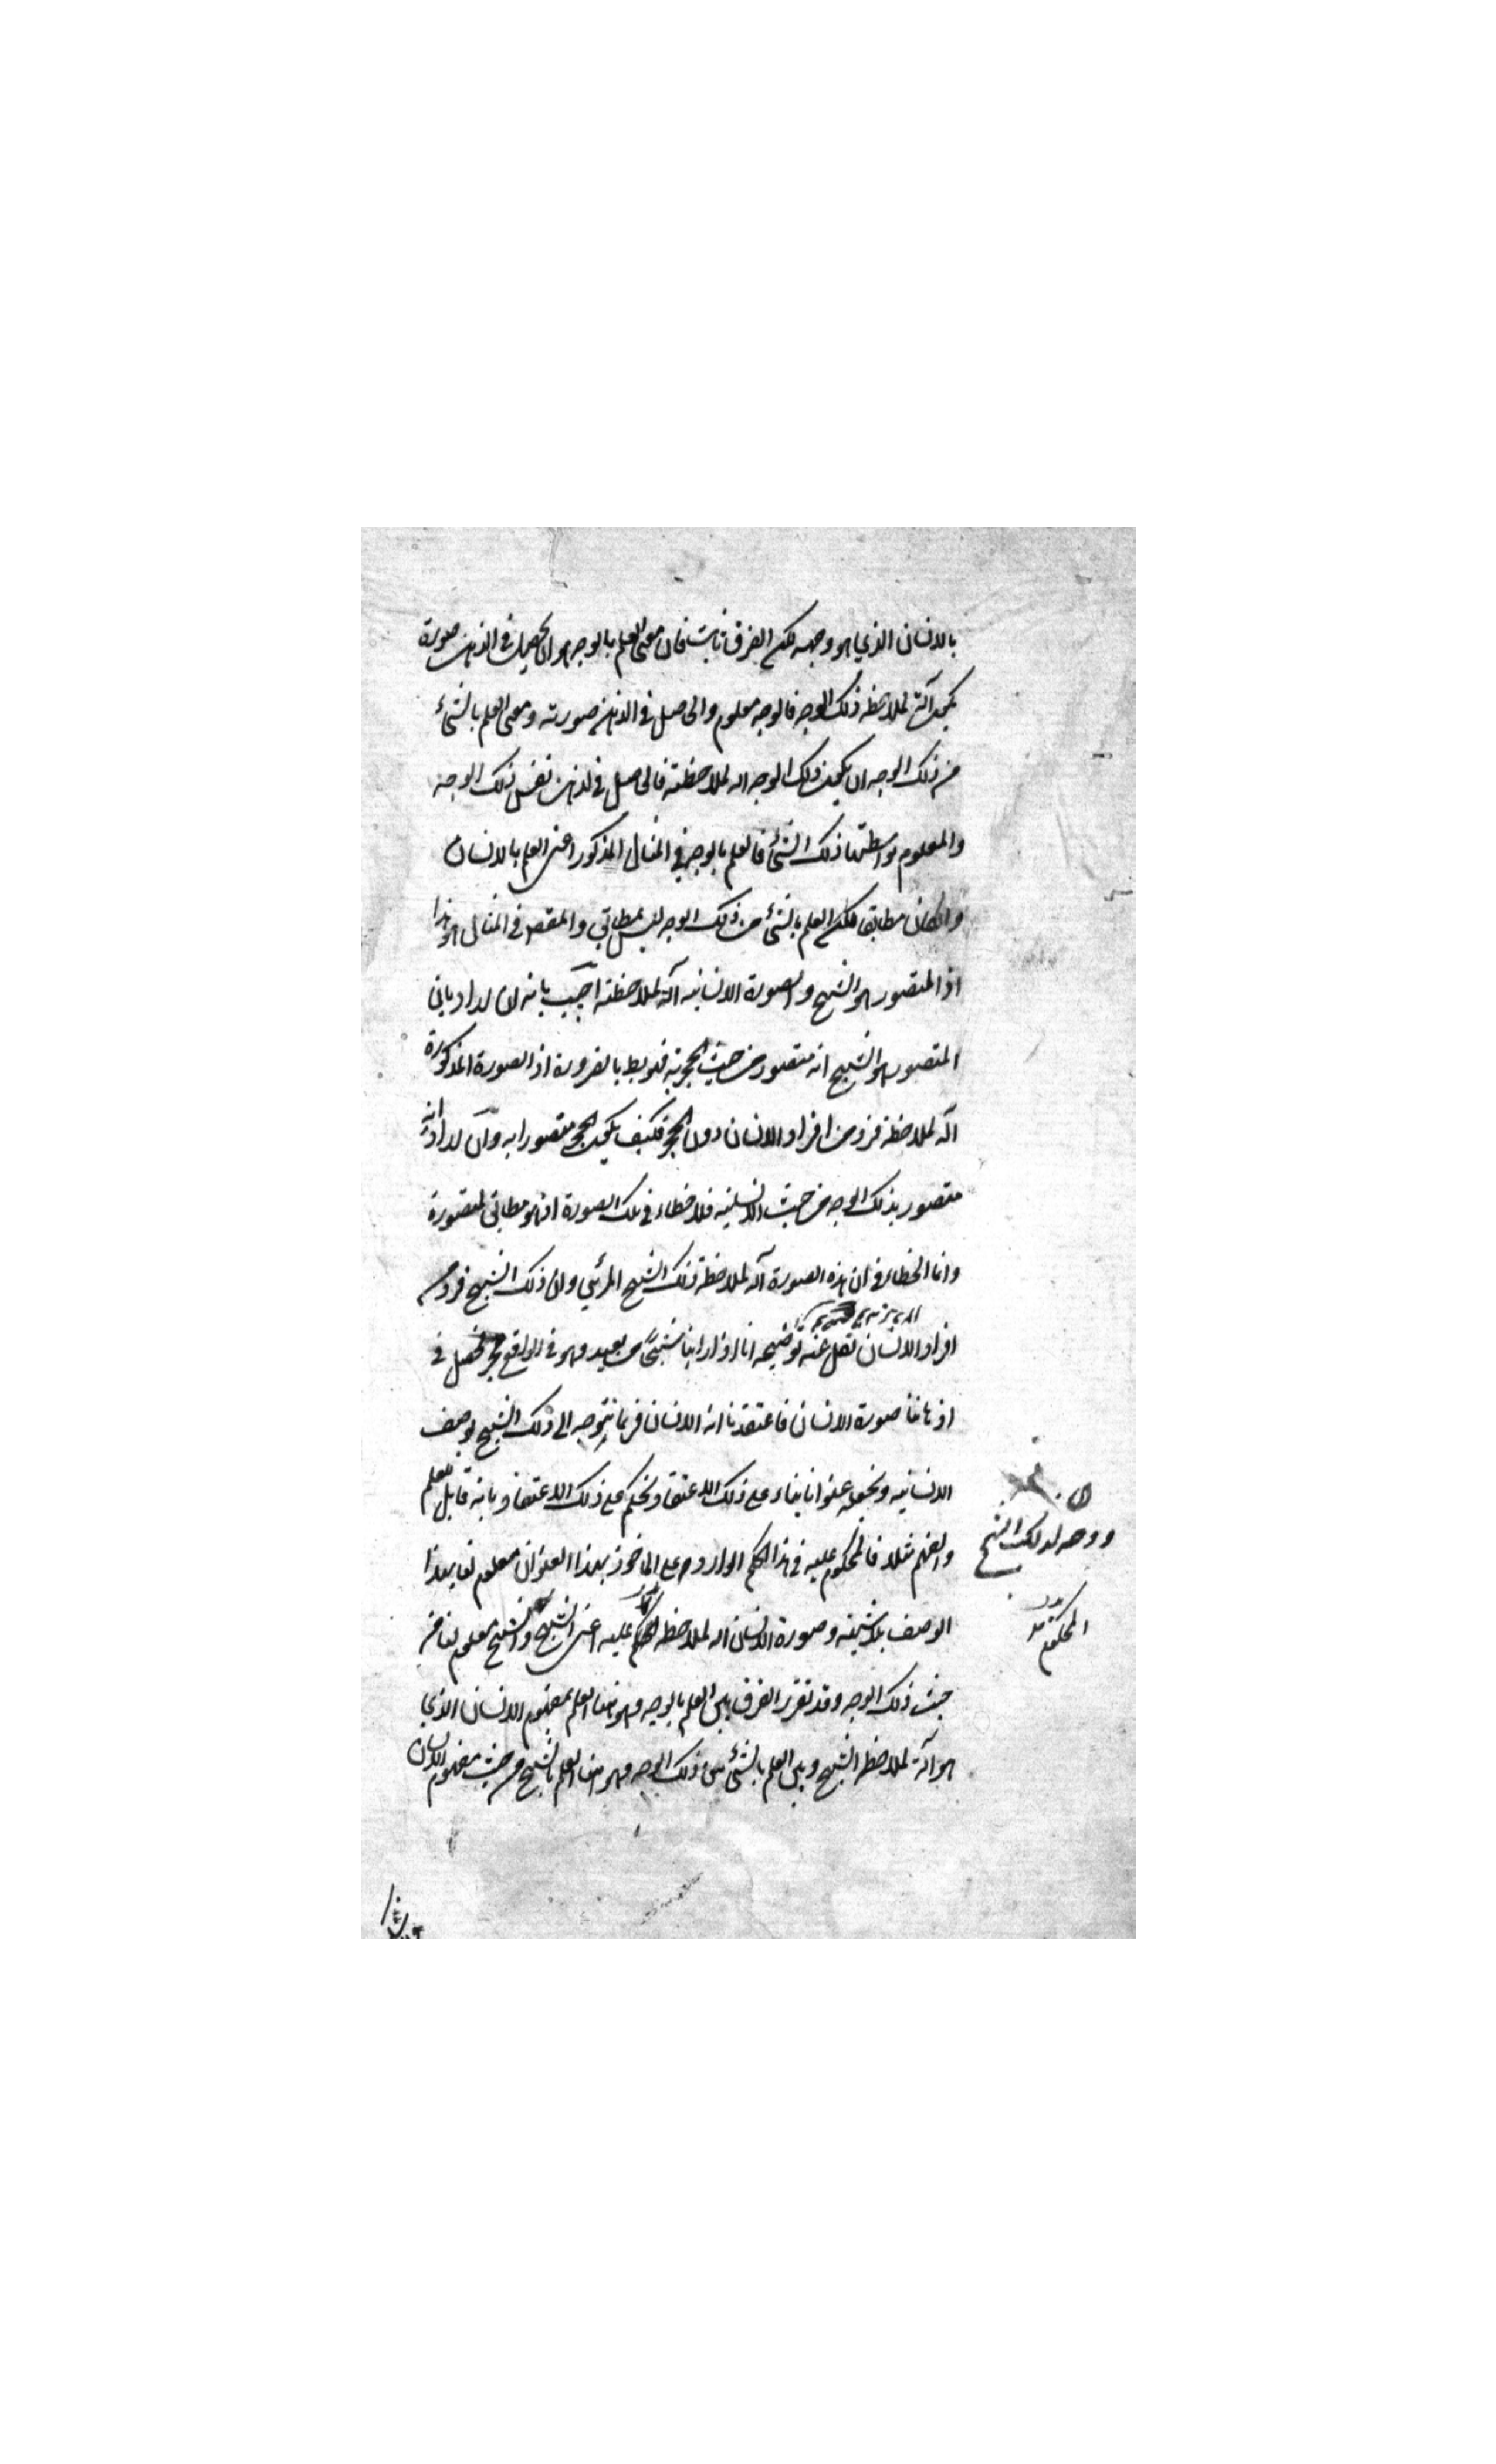 بالانسان الذي هو وجهه لكن الفرق ثابت فان معنى العلم بالوجه هو ان يحصل في الذهن صورة
يكون آلة لملاحظه ذلك الوجه فالوجه معلوم والحاصل في الذهن صورته ومعنى العلم بالشئ
من ذلك الوجه ان يكون ذلك الوجه اله لملاحظته فالحاصل في لذهن نفس ذلك الوجه
والمعلوم بواسطتها ذلك الشئ فالعلم بالوجه في المثال المذكور اعنى العلم بالانسان
وانكان مطابقا لكن العلم بالشئ من ذلك الوجه ليس بمطابق والمقصـ في المثال هو هذا
اذ المتصور هو الشبح والصورة الانسانيه آلة لملاحظته اجيب بانه ان اراد بان
المتصور هو الشبح انه متصور من حيث الحجريه فهو بط بالضرورة اذ الصورة المذكورة
اله لملاحظة فرد من افراد الانسان دون الحجر فكيف يكون الحجر متصورا به وان اراد انه
متصور بذلك الوجه من حيث الانسانيه فلا خطاء في تلك الصورة اذ هو مطابق لمتصورة
وانما الخطاء في ان هذه الصورة آله لملاحظة ذلك الشبح المرئي وان ذلك الشبح فرد من
افراد الانسان نقل عنه توضيحه انا اذا راينا شبحًا من بعيد وهو في الواقع حجر فحصل في
اذهاننا صورة الانسان فاعتقدنا انه الانسان فربما نتوجه الى ذلك الشبح بوصف
الانسانيه ونجعله عنوانا بناء على ذلك الاعتقاد ونحكم على ذلك الاعتقاد بانه قابل للعلم
والفهم مثلا فالمحكوم عليه في هذا الحكم الوارد على الماخوذ بهذا العنوان معلوم لنا بهذا
الوصف بلا شبهة وصورة الانسان اله لملاحظه المحكوم عليه اعنى الشبح والشبح معلوم لنا من
حيث ذلك الوجه وقد تقرر الفرق بين العلم بالوجه وهو هنا العلم بمفهوم الانسان الذي
هو آلة لملاحظه الشبح وبين العلم بالشئ من ذلك الوجه وهو هنا العلم بالشبح من حيث مفهوم الانسان
ووجه لذلك الشبح
المحكوم